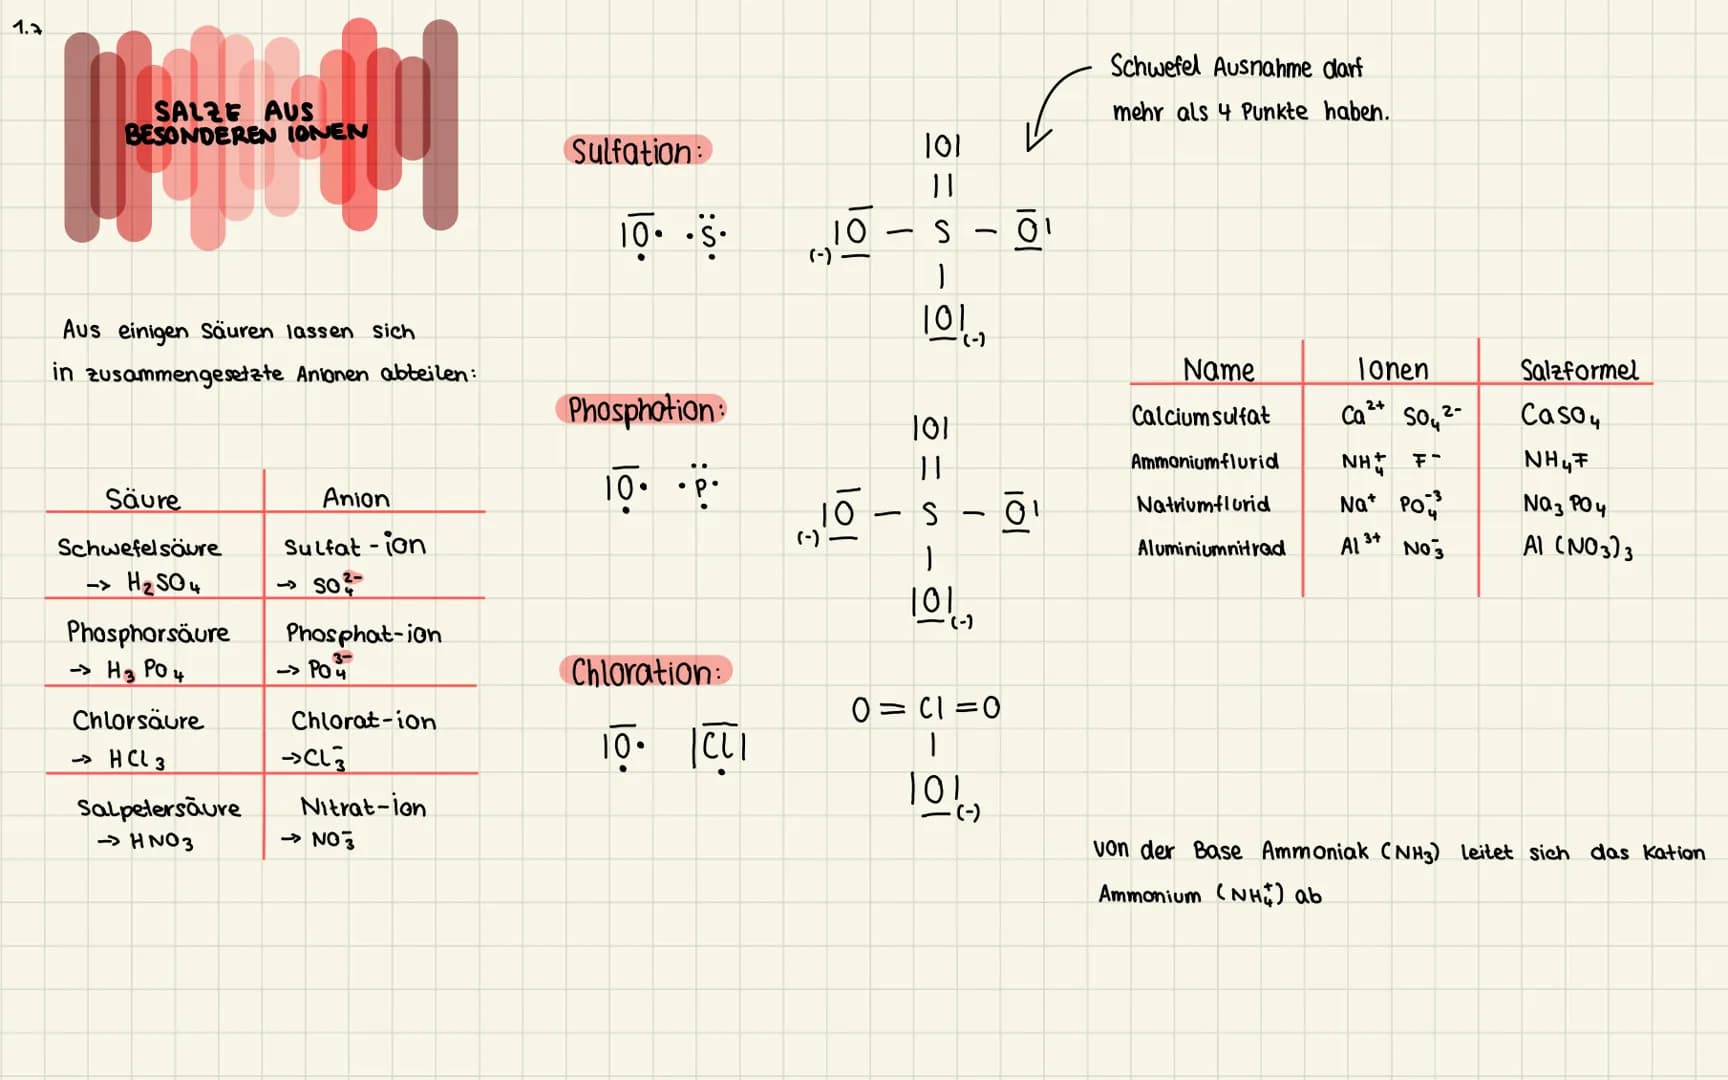 1.7
SALZE AUS
BESONDEREN IONEN
Aus einigen Säuren lassen sich
in zusammengesetzte Anionen abteilen:
Säure Anion
Schwefelsäure Sulfat-ion
→ H₂SO₄ → SO₄²⁻
Phosphorsäure Phosphat-ion
→ H₃PO₄ → PO₄³⁻
Chlorsäure Chlorat-ion
→ HCl₃ → Cl₃⁻
Salpetersäure Nitrat-ion
→ HNO₃ → NO₃⁻
Sulfation:
|O· ·S·
Schwefel Ausnahme darf
mehr als 4 Punkte haben.
|O|
||
(-) |O – S – O|
|
|O| (-)
Phosphation:
|O· ·P·
|O|
||
(-) |O – S – O|
|
|O| (-)
Chloration:
|O· |Cl|
O = Cl = O
|
|O| (-)
Name Ionen Salzformel
Calciumsulfat Ca²⁺ SO₄²⁻ CaSO₄
Ammoniumflurid NH₄⁺ F⁻ NH₄F
Natriumflurid Na⁺ PO₄⁻³ Na₃PO₄
Aluminiumnitrad Al³⁺ NO₃⁻ Al(NO₃)₃
von der Base Ammoniak (NH₃) leitet sich das Kation
Ammonium (NH₄⁺) ab